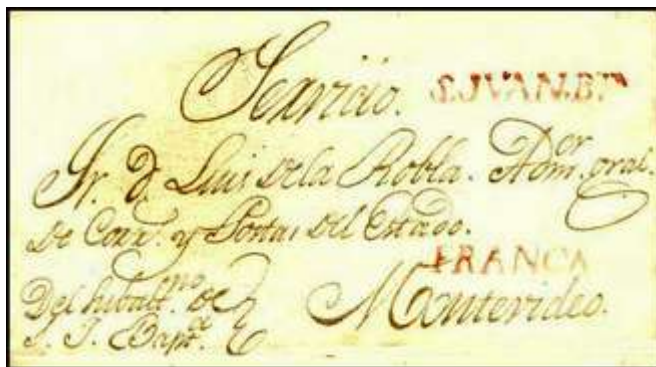 Servicio. S.JVAN.BTA
Sr. D. Luis Dela Robla. Admor. gral.
De Corrs. y Postas del Estado.
FRANCA
Del Subaltno. de
S. J. Bapta. Montevideo.